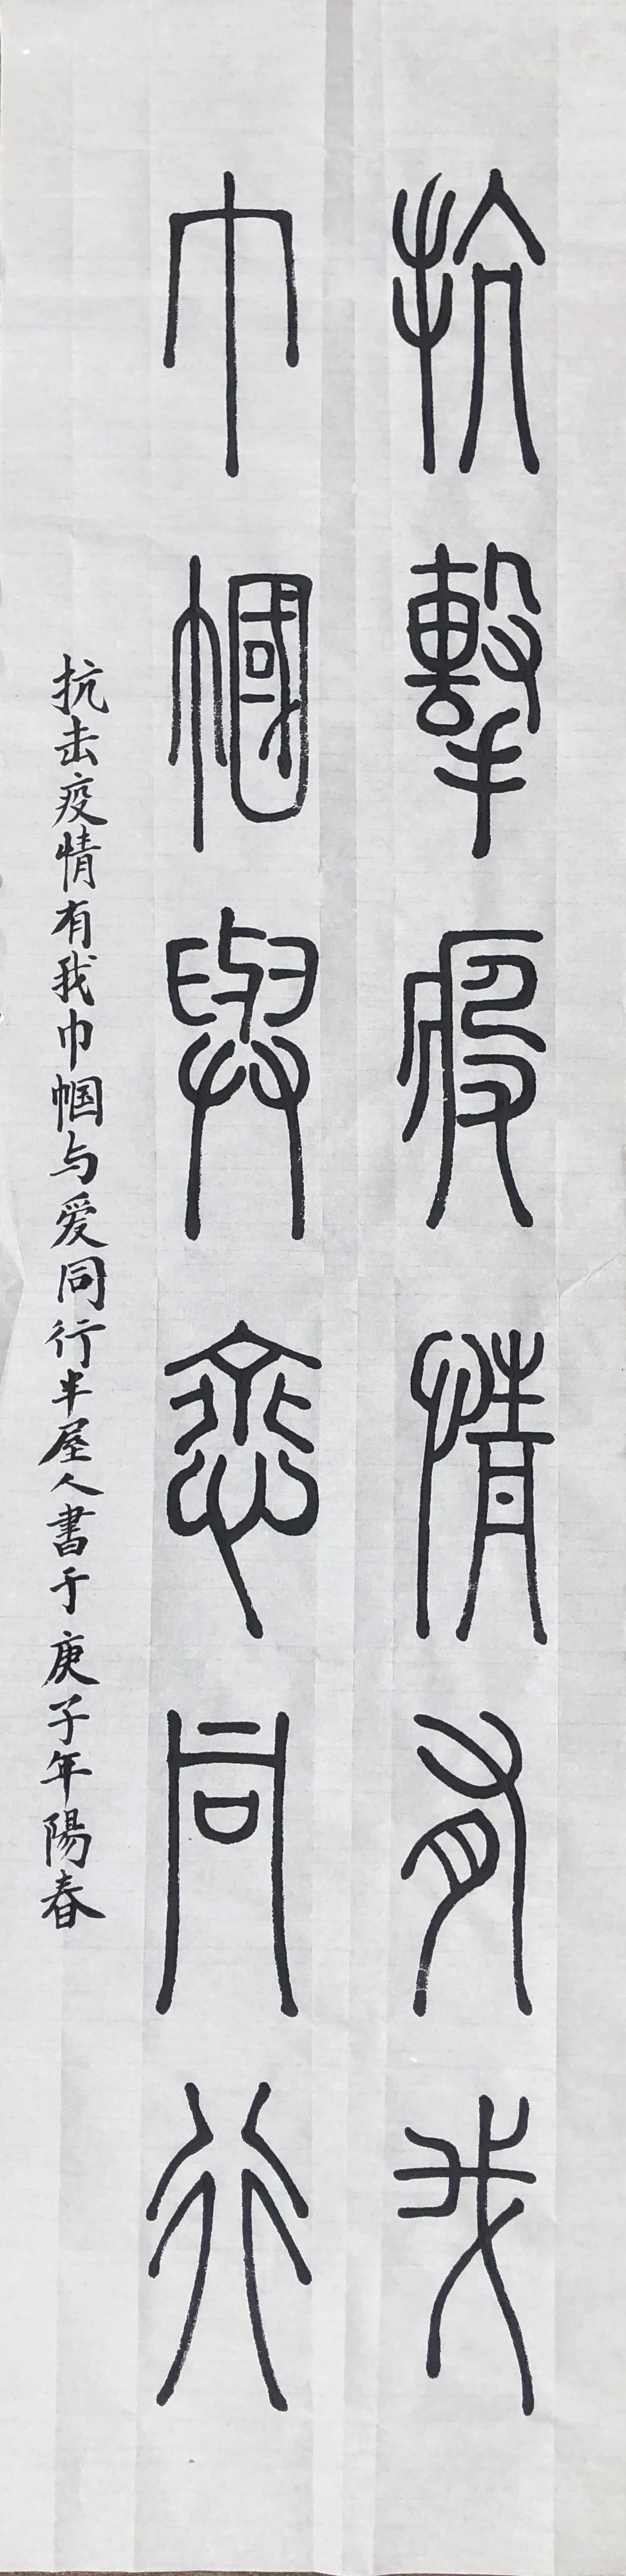 抗擊疫情有我
巾幗與㤅同行
抗击疫情有我巾帼与爱同行半屋人書于庚子年陽春